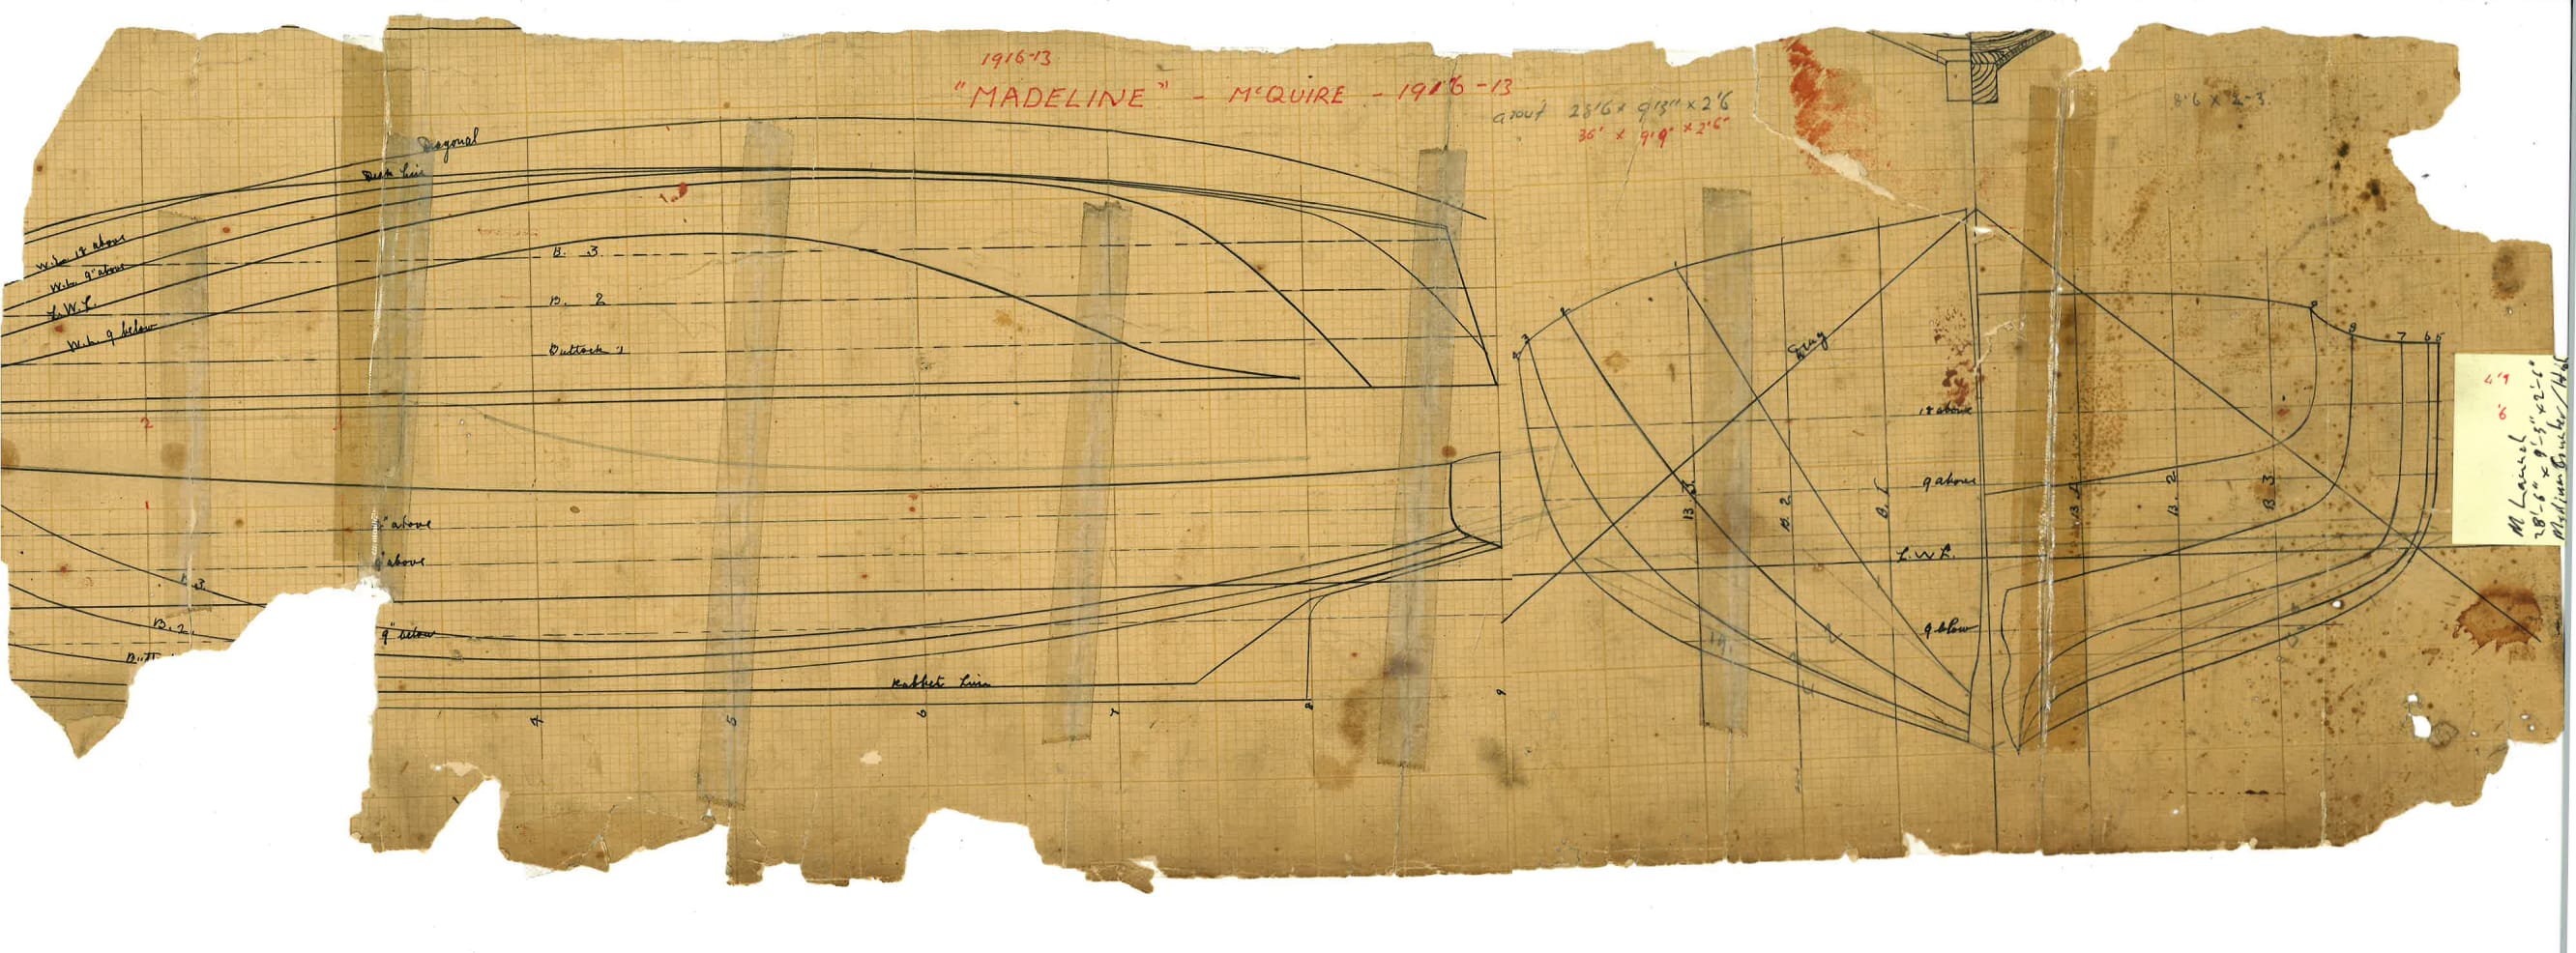 1916-13
"MADELINE" - McQUIRE - 1916-13
about 28'6 x 9'3" x 2'6
36' x 9'9" x 2'6"
8'6 x 2-3.
Diagonal
Deck Line
W.L. 18 above
W.L. 9" above
L.W.L.
W.L. 9 below
B. 3
B. 2
Buttock 1
2
3
1
" above
9" above
B. 3
B. 2.
Butt
9" below
Rabbet Line
4
5
6
7
8
9
Diag
18 above
9 above
L.W.L.
9 blow
B. 2
B. 1
B. 1
B. 2
B. 3
9
8
7
6
5
4'9
'6
M Launch
28'-6" x 9'-3" x 2'-6"